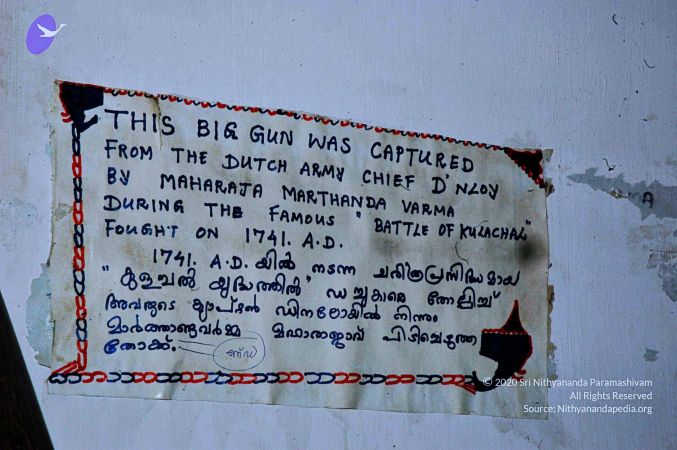 THIS BIG GUN WAS CAPTURED
FROM THE DUTCH ARMY CHIEF D'NLOY
BY MAHARAJA MARTHANDA VARMA
DURING THE FAMOUS "BATTLE OF KULACHAL"
FOUGHT ON 1741. A.D.
1741. A.D. യിൽ നടന്ന ചരിത്രപ്രസിദ്ധമായ
"കുളച്ചൽ യുദ്ധത്തിൽ" ഡച്ചുകാരെ തോല്പിച്ച്
അവരുടെ ക്യാപ്ടൻ ഡിനലോയിൽ നിന്നും
മാർത്താണ്ഡവർമ്മ മഹാരാജാവ് പിടിച്ചെടുത്ത
തോക്ക്.
ണ്ഡ
A
© 2020 Sri Nithyananda Paramashivam
All Rights Reserved
Source: Nithyanandapedia.org